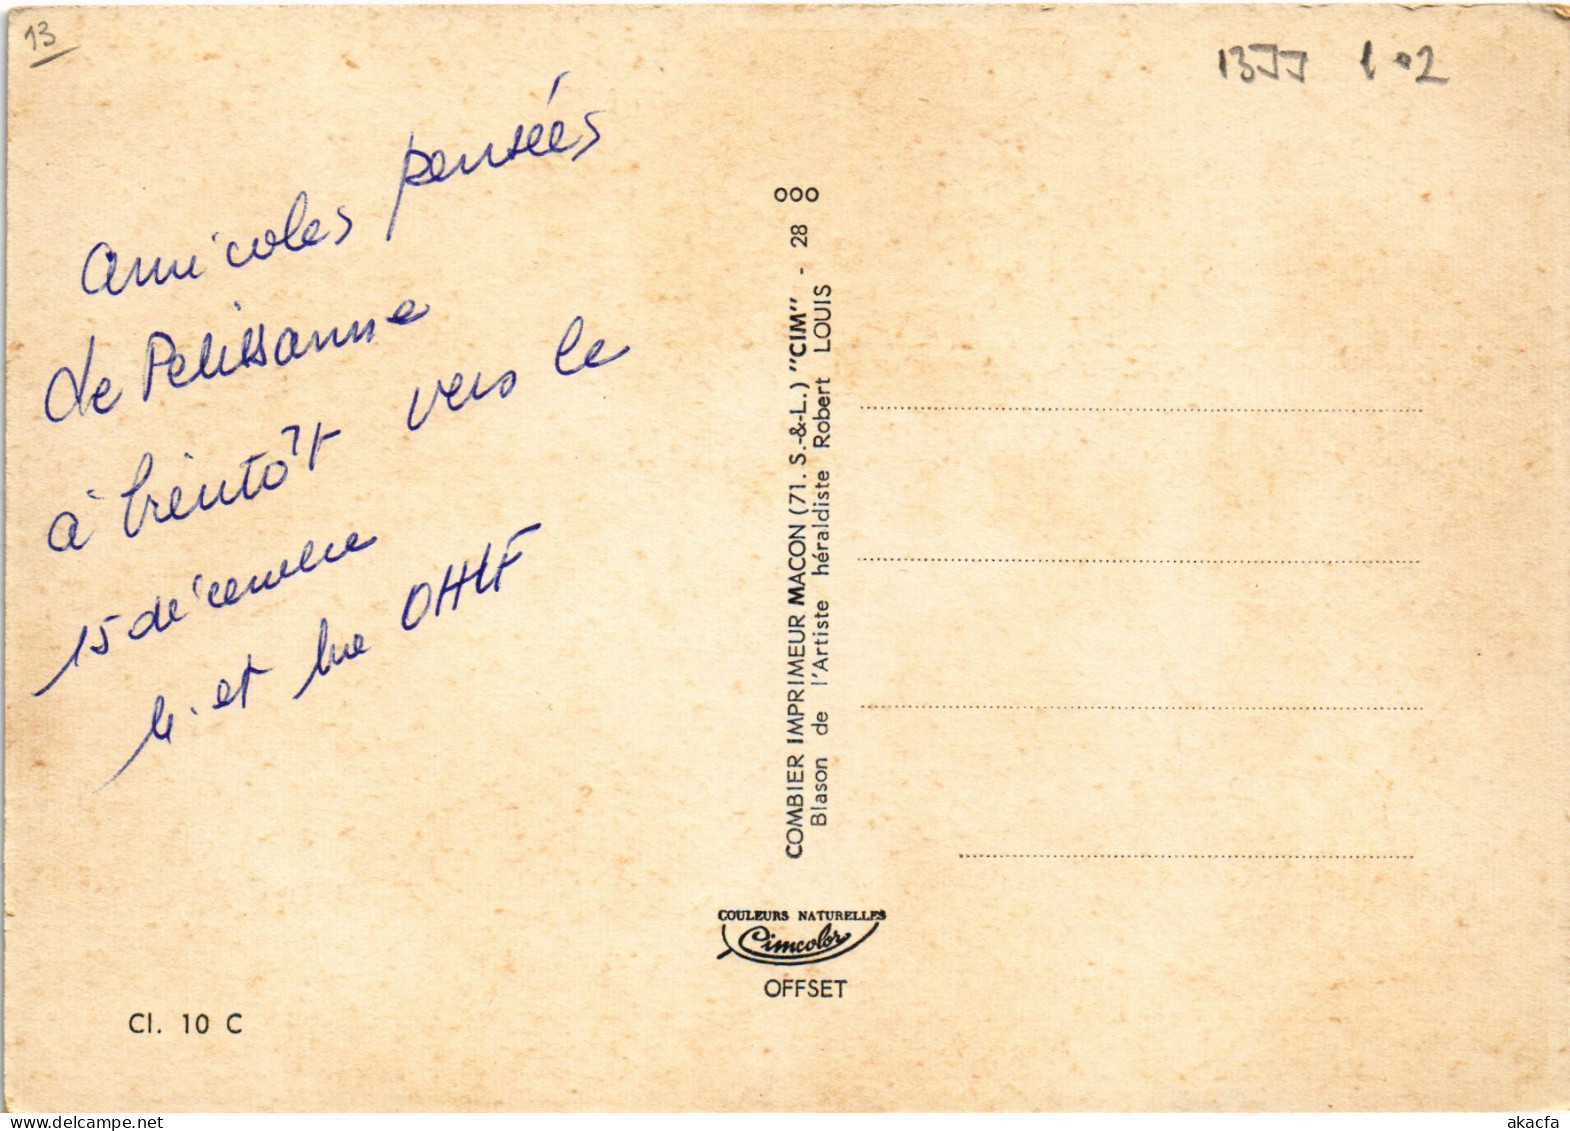 13
13JJ 1.02
amicales pensées
de Pelissanne
à bientôt vers le
15 décembre
et
COMBIER IMPRIMEUR MACON (71. S.-&-L.) "CIM" - 28 ooo
Blason de l'Artiste héraldiste Robert LOUIS
COULEURS NATURELLES
Cimcolor
OFFSET
Cl. 10 C
akacfa
delcampe.net